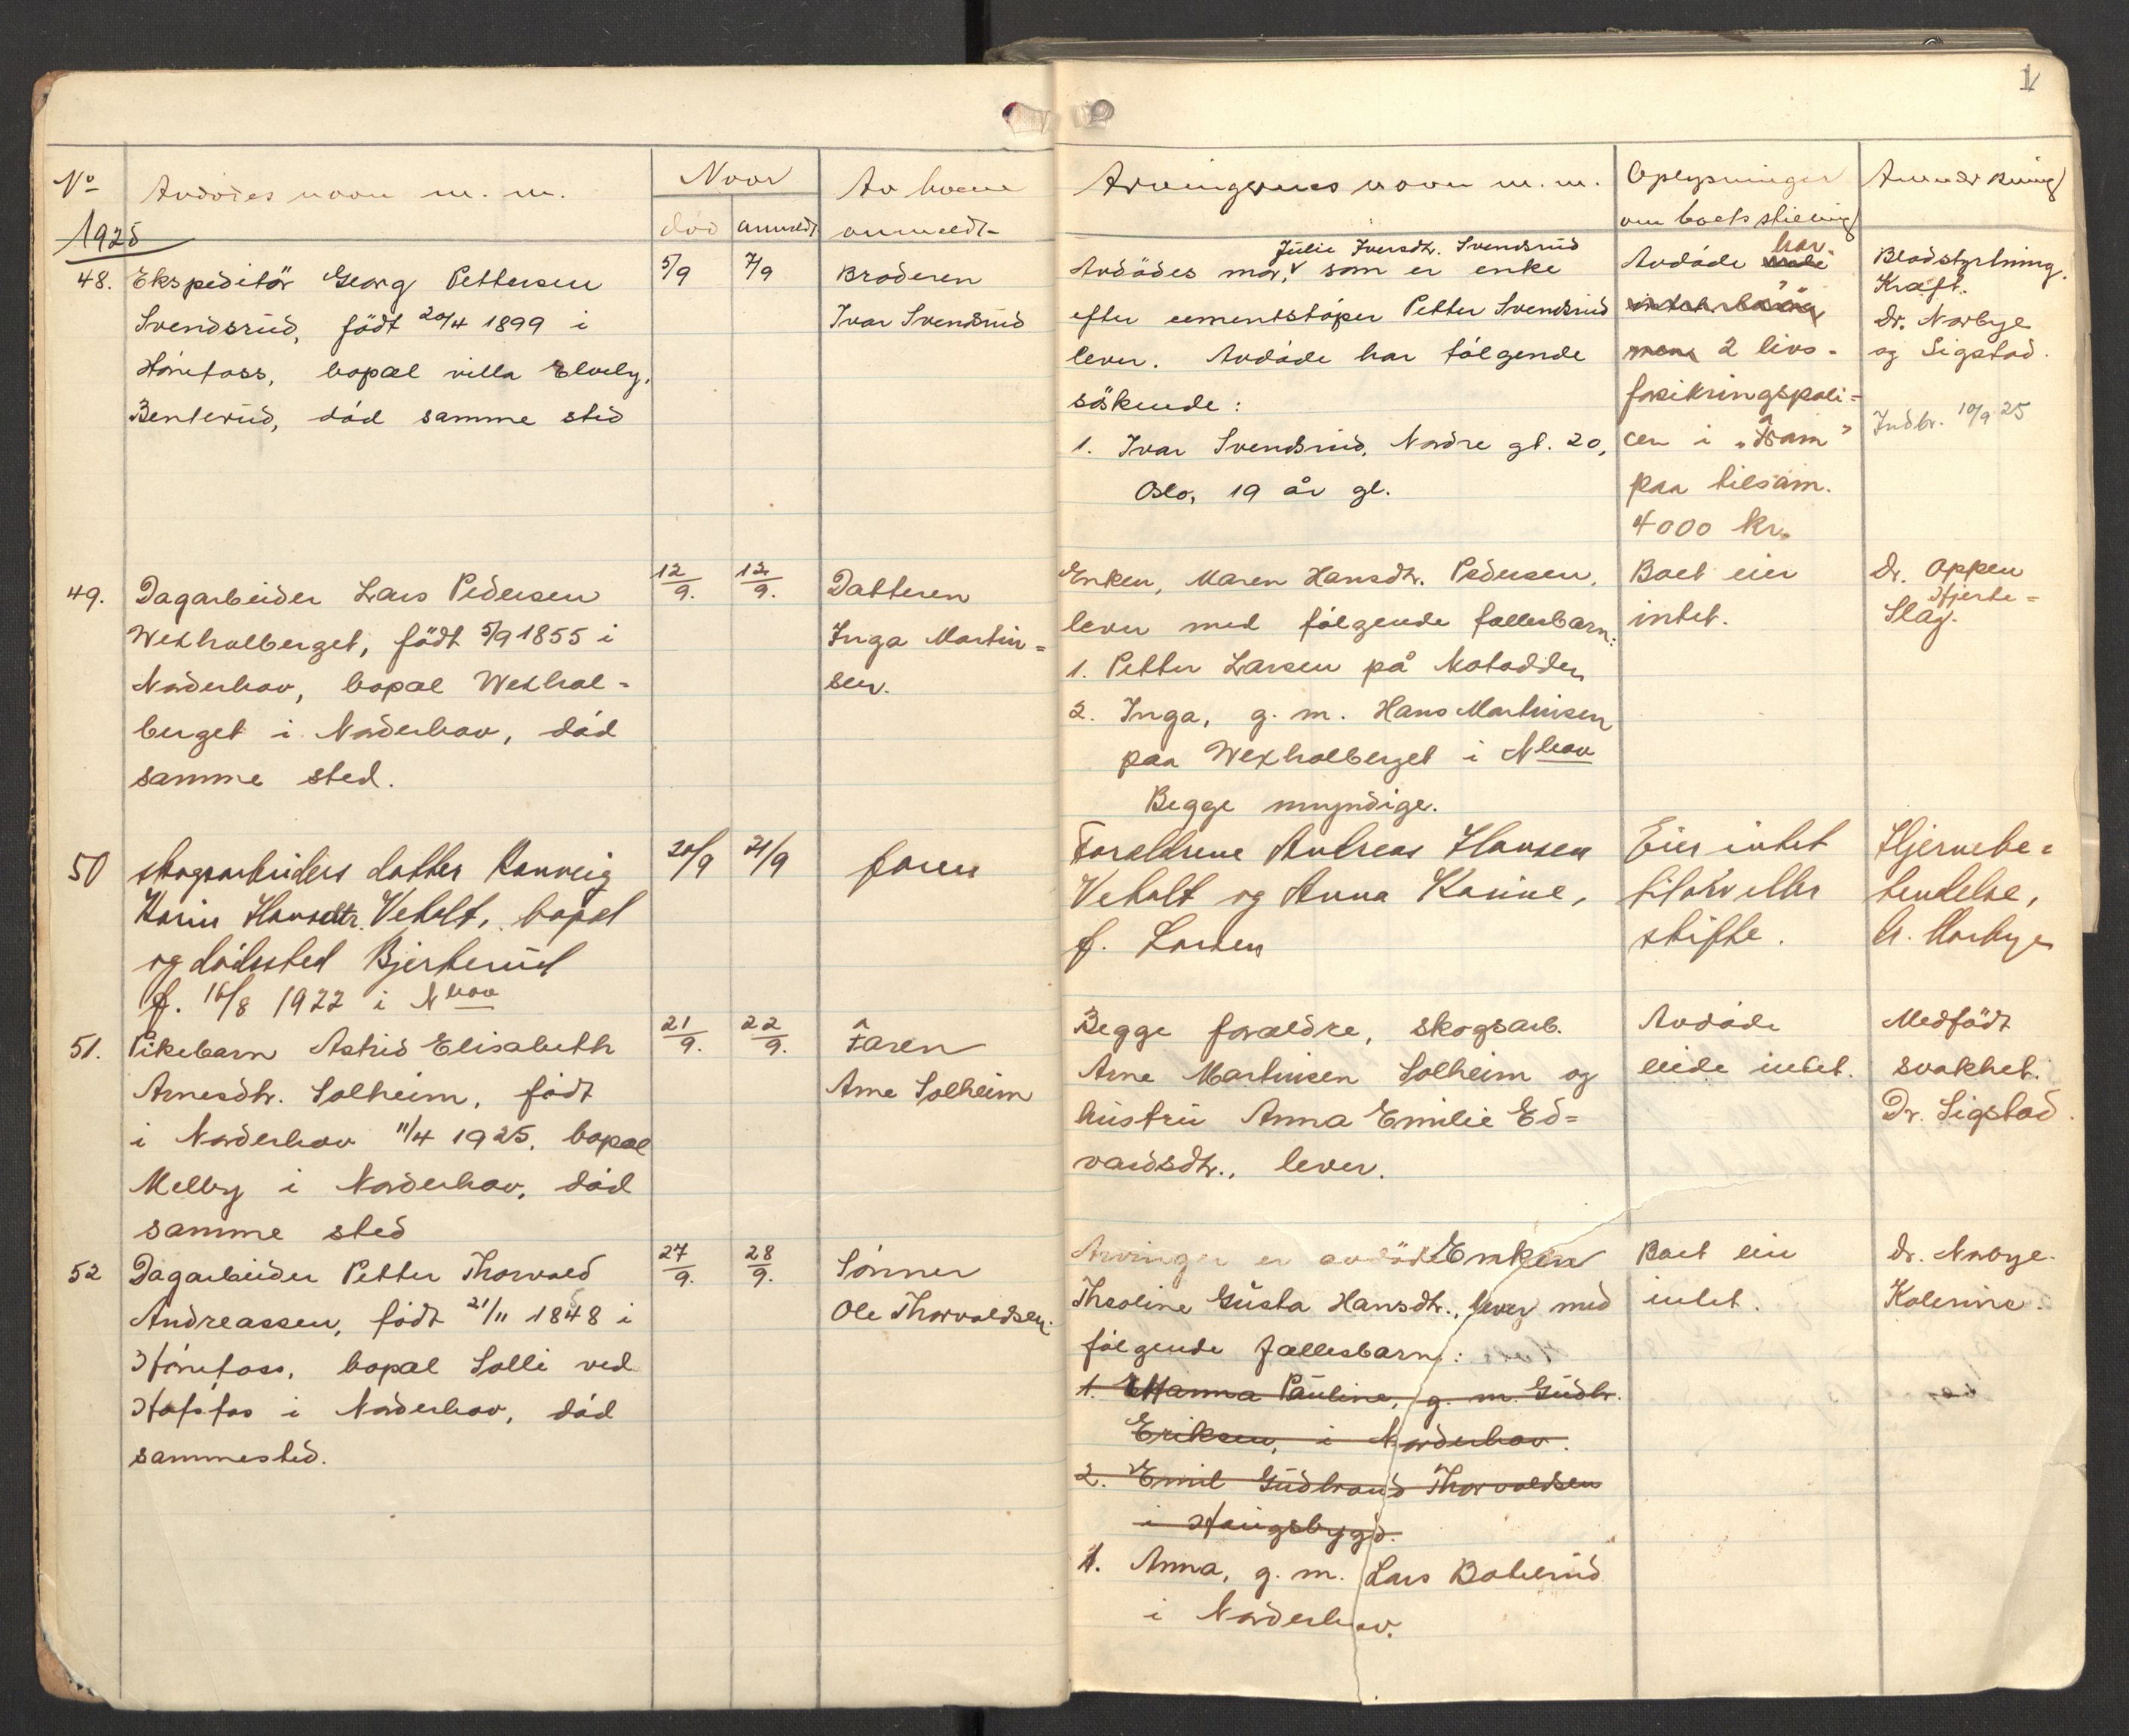 1
No
Avdødes navn m. m.
Naar
død
anmeldt
Av hvem
anmeldt
Arvingernes navn m. m.
Oplysninger
om boets stilling
Anmerkning
1925
48. Ekspeditör Georg Pettersen
Svendsrud, født 20/4 1899 i
Hønefoss, bopæl villa Elvely,
Benterud, død samme sted
5/9
7/9
Broderen
Ivar Svendsrud
Julie Iversdtr. Svendsrud
Avdødes mor, v som er enke
efter cementstøper Petter Svendsrud
lever. Avdøde har følgende
söskende:
1. Ivar Svendsrud, Nordre gt. 20,
Oslo, 19 år gl.
har
Avdøde
men 2 livs-
forikringspoli=
cer i "Fram"
paa tilsam.
4000 kr.
Blodstyrtning.
Kræft.
Dr. Norbye
og Sigstad.
Indbr. 10/9 25
49. Dagarbeider Lars Pedersen
Wexhalberget, født 5/9 1855 i
Norderhov, bopæl Wexhal-
berget i Norderhov, død
samme sted.
12/9.
12/9.
Datteren
Inga Martin=
sen.
Enken, Maren Hansdtr. Pedersen,
lever med følgende fællesbarn:
1. Petter Larsen på Notodden
2. Inga, g. m. Hans Martinsen
paa Wexhalberget i Nhov
Begge myndige.
Boet eier
intet.
Dr. Oppen
Hjerte=
Slag.
50 skogsarbeiders datter Ranveig
Karin Hansdtr. Veholt, bopæl
og dødssted Bjerkerud
f. 16/8 1922 i Nhov
20/9
21/9
faren
Forældrene Andreas Hansen
Veholt og Anna Karine,
f. Larsen
Eier intet
tilary eller
skifte.
Hjernebe=
tendelse,
Dr. Norbye
51. Pikebarn Astrid Elisabeth
Arnesdtr. Solheim, født
i Norderhov 11/4 1925, bopæl
Melby i Norderhov, død
samme sted
21/9.
22/9.
Faren
Arne Solheim
Begge forældre, skogsarb.
Arne Martinsen Solheim og
hustru Anna Emilie Ed=
vardsdtr., lever.
Avdøde
eiede intet.
Medfødt
svakhet.
Dr. Sigstad.
52 Dagarbeider Petter Thorvald
Andreassen, født 21/11 1848 i
Hønefoss, bopæl Solli ved
Hofsfos i Norderhov, død
sammested.
27/9.
28/9.
Sønnen
Ole Thorvaldsen.
Arvinger er avdødes Enken
Theoline Gusta Hansdtr., lever med
følgende fællesbarn:
1. Hanna Pauline, g. m. Gudbr.
Eriksen, i Norderhov.
2. Emil Gudbrand Thorvaldsen
i Haugsbygd.
1. Anna, g. m. Lars Boterud
i Norderhov.
Boet eier
intet.
Dr. Norbye.
Kolerine.